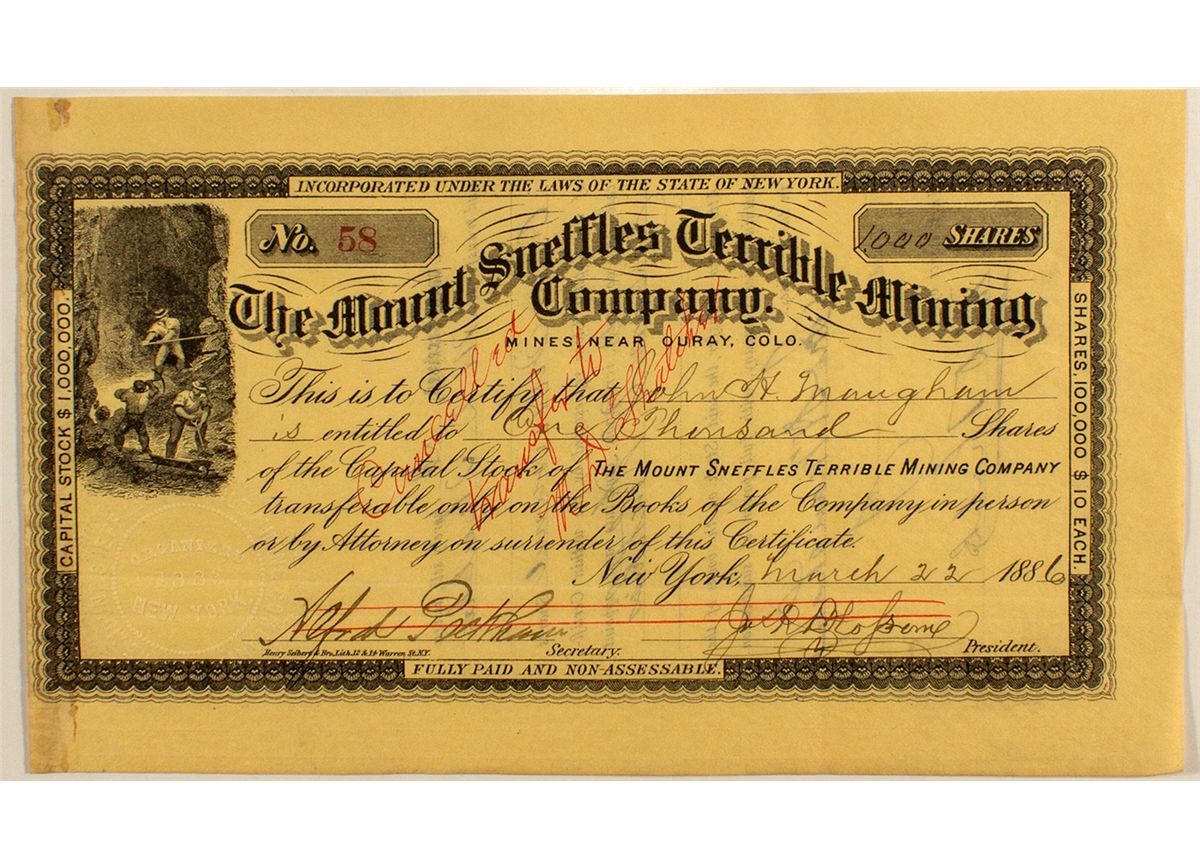 INCORPORATED UNDER THE LAWS OF THE STATE OF NEW YORK.
No. 58
1000 SHARES
The Mount Sneffles Terrible Mining
Company.
MINES, NEAR OURAY, COLO.
This is to Certify that John H. Maugham
is entitled to One Thousand Shares
of the Capital Stock of THE MOUNT SNEFFLES TERRIBLE MINING COMPANY
transferable only on the Books of the Company in person
or by Attorney on surrender of this Certificate.
New York, March 22 1886
Alfred
Secretary.
President.
Henry Seibert & Bro. Lith. 12 & 14 Warren St. N.Y.
FULLY PAID AND NON-ASSESSABLE.
CAPITAL STOCK $1,000,000.
SHARES, 100,000 $10 EACH.
Cancelled
transfer to
ORGANIZED
NEW YORK